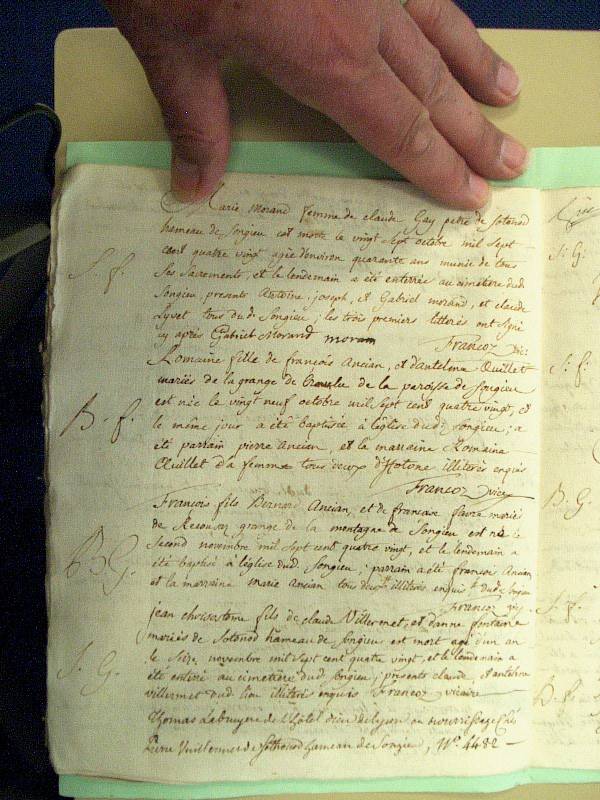 Marie Morand femme de claude Gay petre de Sotonod
hameau de Songieu est morte le vingt Sept octobre mil Sept
cent quatre vingt agée d'environ quarante ans munie de tous
Ses Sacrements, et le lendemain a été enterrée au cimetière dud
S. f.
Songieu, presents Antoine, joseph, et Gabriel morand, et claude
Lyvet tous dud. Songieu; les trois premiers litterés ont Signé
cy après Gabriel Morand moran
Francoz vic:
Romaine fille de francois Ancian, et d'antelma Œuillet
mariés de la grange de de la paroisse de Songieu
est née le vingt neuf octobre mil Sept cent quatre vingt, et
B. f.
le même jour a été baptisée à l'église dud. Songieu; a
été parrain pierre Ancian, et la marraine Romaine
Œuillet Sa femme tous deux d'Hotone illiterés enquis
Francoz vice
François fils Bernard Ancian, et de francoise favre mariés
de grange de la montagne de Songieu est né le
Second novembre mil Sept cent quatre vingt, et le lendemain a
B G.
été baptisé à l'église dud Songieu; parrain a été francois Ancian
et la marraine marie Ancian tous deux illiterés enquis
Francoz vic
jean chrisostome fils de claude Villermet, et d'anne fontaine
mariés de Sotonod hameau de Songieu est mort agé d'un an
le Seize novembre mil Sept cent quatre vingt, et le lendemain a
S. G.
été enterré au cimetière dud Songieu; presents claude, et antelme
villermet dud lieu illiterés enquis Francoz vicaire
Thomas Labruyere de l'hôtel dieu de lyon en nourrissage chés
Pierre Vuillermet de Sothonod hameau de Songieu, N°. 4482